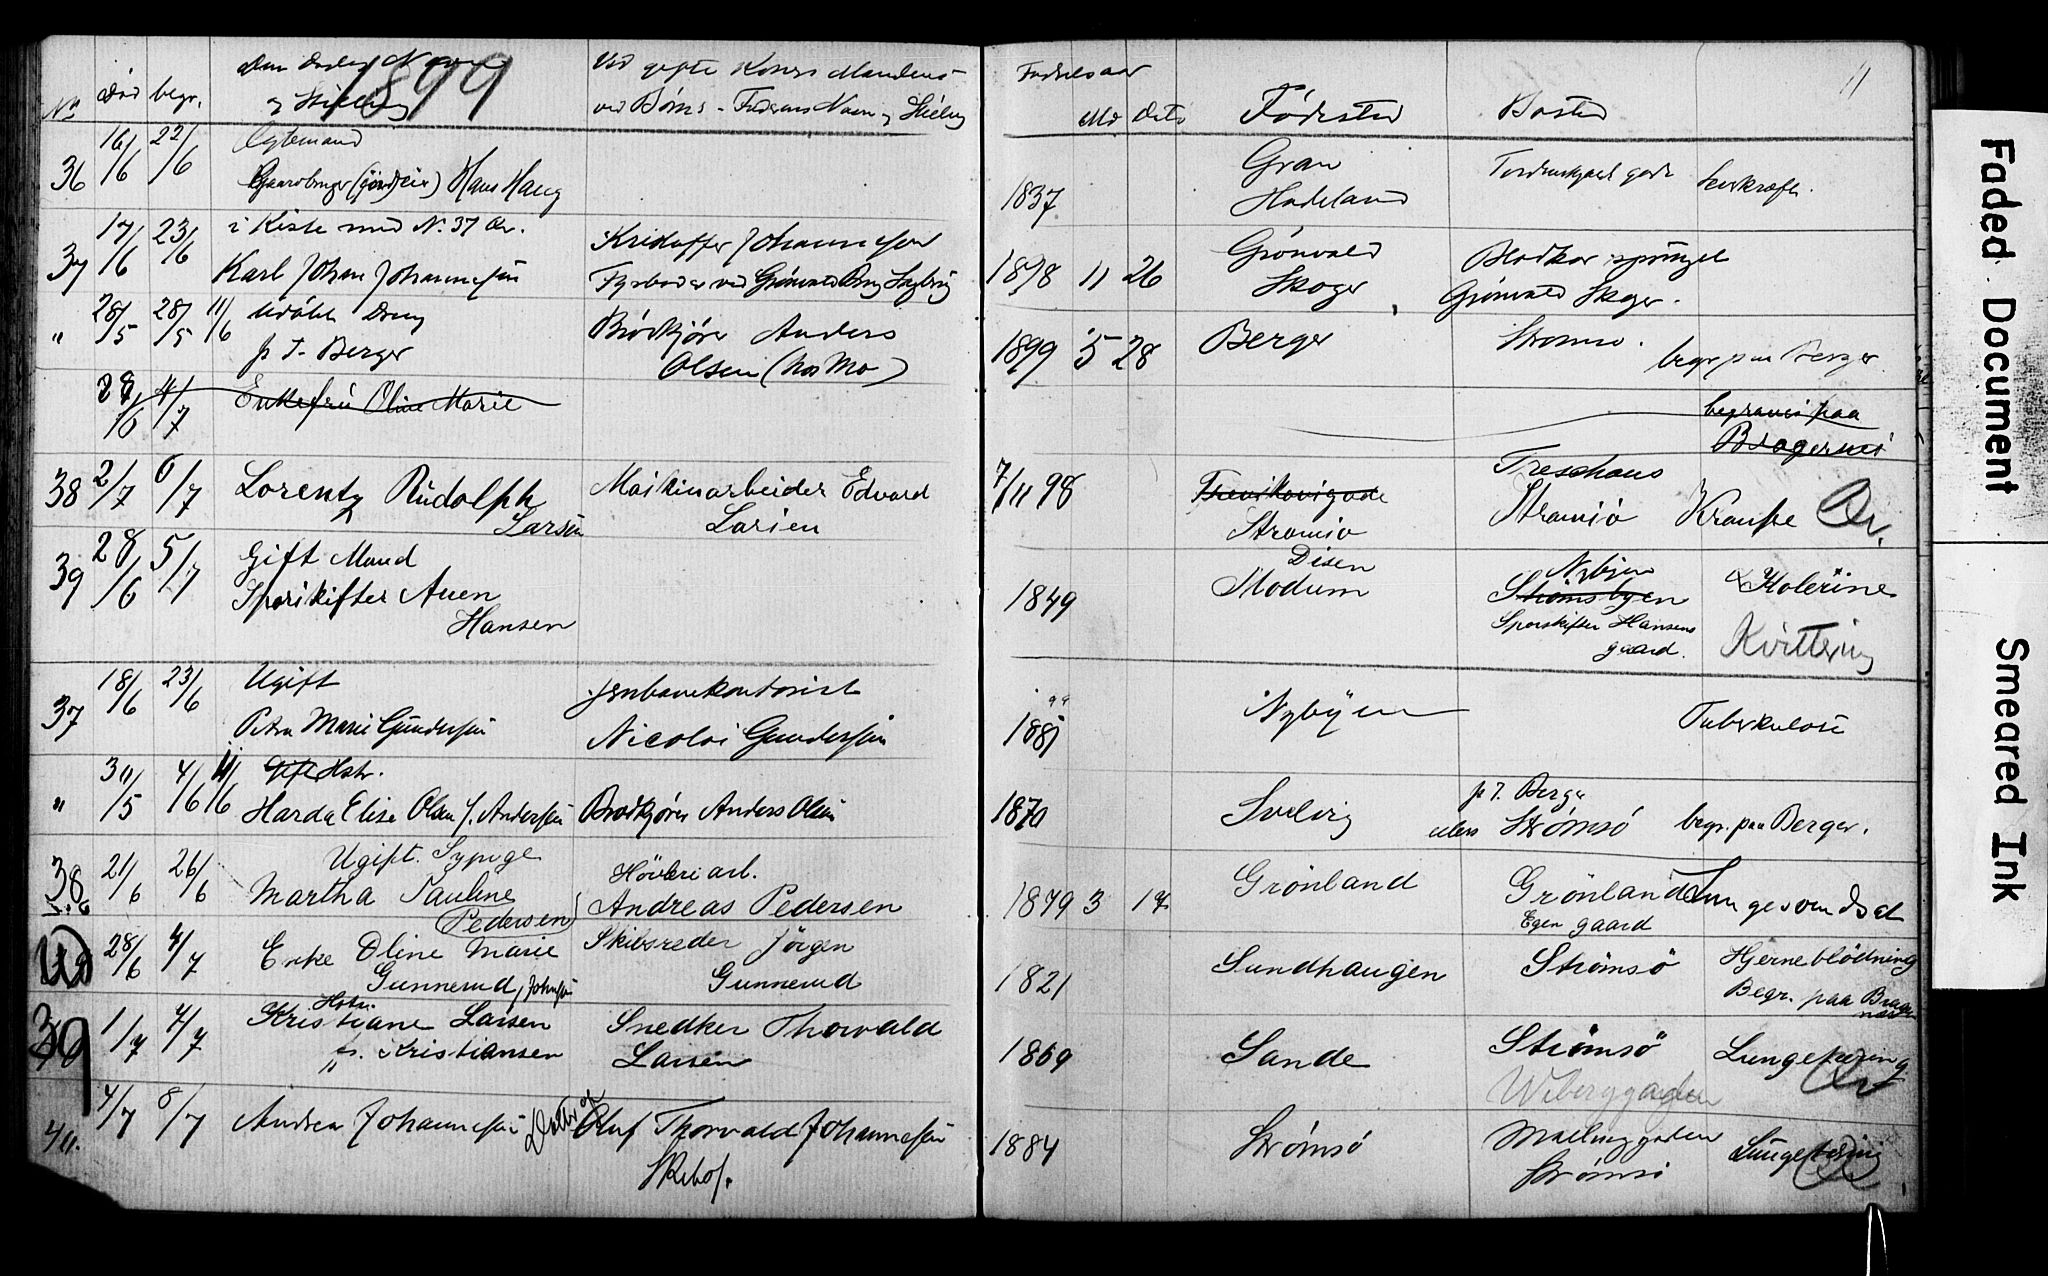 1899
No Død begr. Den Dødes Navn og Stilling Ved gifte Koner Mandens ved Børns - Faderens Navn og Stilling
Fødselsaar Md Dato Fødested Bosted 11
36 16/6 22/6 Egtemand
Gaardbruger Hans Haug 1837 Gran
Hadeland
37 17/6 23/6 i Kiste med N. 37 Øv.
Karl Johan Johannesen Kristoffer Johannesen
Fyrbøder ved Grønvold Brug 1898 11 26 Grönvold
Skoger
Grönvold Skoger.
" 28/5 28/5 11/6 Udöbt Dreng
p. t. Berger Brödkjörer Anders
Olsen (hos Mo) 1899 5 28 Berger Strömsö. begr. paa Berger
28/6 4/7 Enkefrú Oline Marie begraves paa
Bragernes
38 2/7 6/7 Lorentz Rúdolph
Larsen Maskinarbeider Edvard
Larsen 7/11 98
Strömsö Treschous
Strömsö Krampe Øv.
39 28/6 5/7 Gift Mand
Sporskifter Aven
Hansen 1849 Disen
Modum Nybyen
Strömsbyen
Sporskifter Hansens
gaard. Kolerine
Kvittering
37 18/6 23/6 Ugift
Petra Marie Gúndersen Jernbanekontorist
Nicolai Gundersen 1881 Nybyen Tuberkulose
" 31/5 4/6 11/6 Gift Hstr.
Harda Elise Olsen f. Andersen Brödkjörer Anders Olsen 1870 Svelvig p. t. Berger
ellers Strømsö begr. paa Berger.
38 21/6 26/6 Ugift. Sypige
Martha Pauline
Pedersen Hövleriarb.
Andreas Pedersen 1879 3 17 Grönland Grönland
Egen gaard Lungesvindsot
28/6 4/7 Enke Oline Marie
Gunnerud, Johnsen Skibsreder Jörgen
Gunnerud 1821 Sundhaugen Strömsö Hjerneblödning
Begr. paa Brager
næs
39 1/7 7/7 Hstr.
Kristiane Larsen
f. Kristiansen Snedker Thorvald
Larsen 1869 Sande Strömsö
Wiberggaden Lungetæring
Øv
40. 4/7 8/7 Andrea Johannesen Datter af Oluf Thorvald Johannesen
Skibsf. 1884 Strömsö Mællinggaden
Strömsö Lungetæring
Øv
Faded Document
Smeared Ink